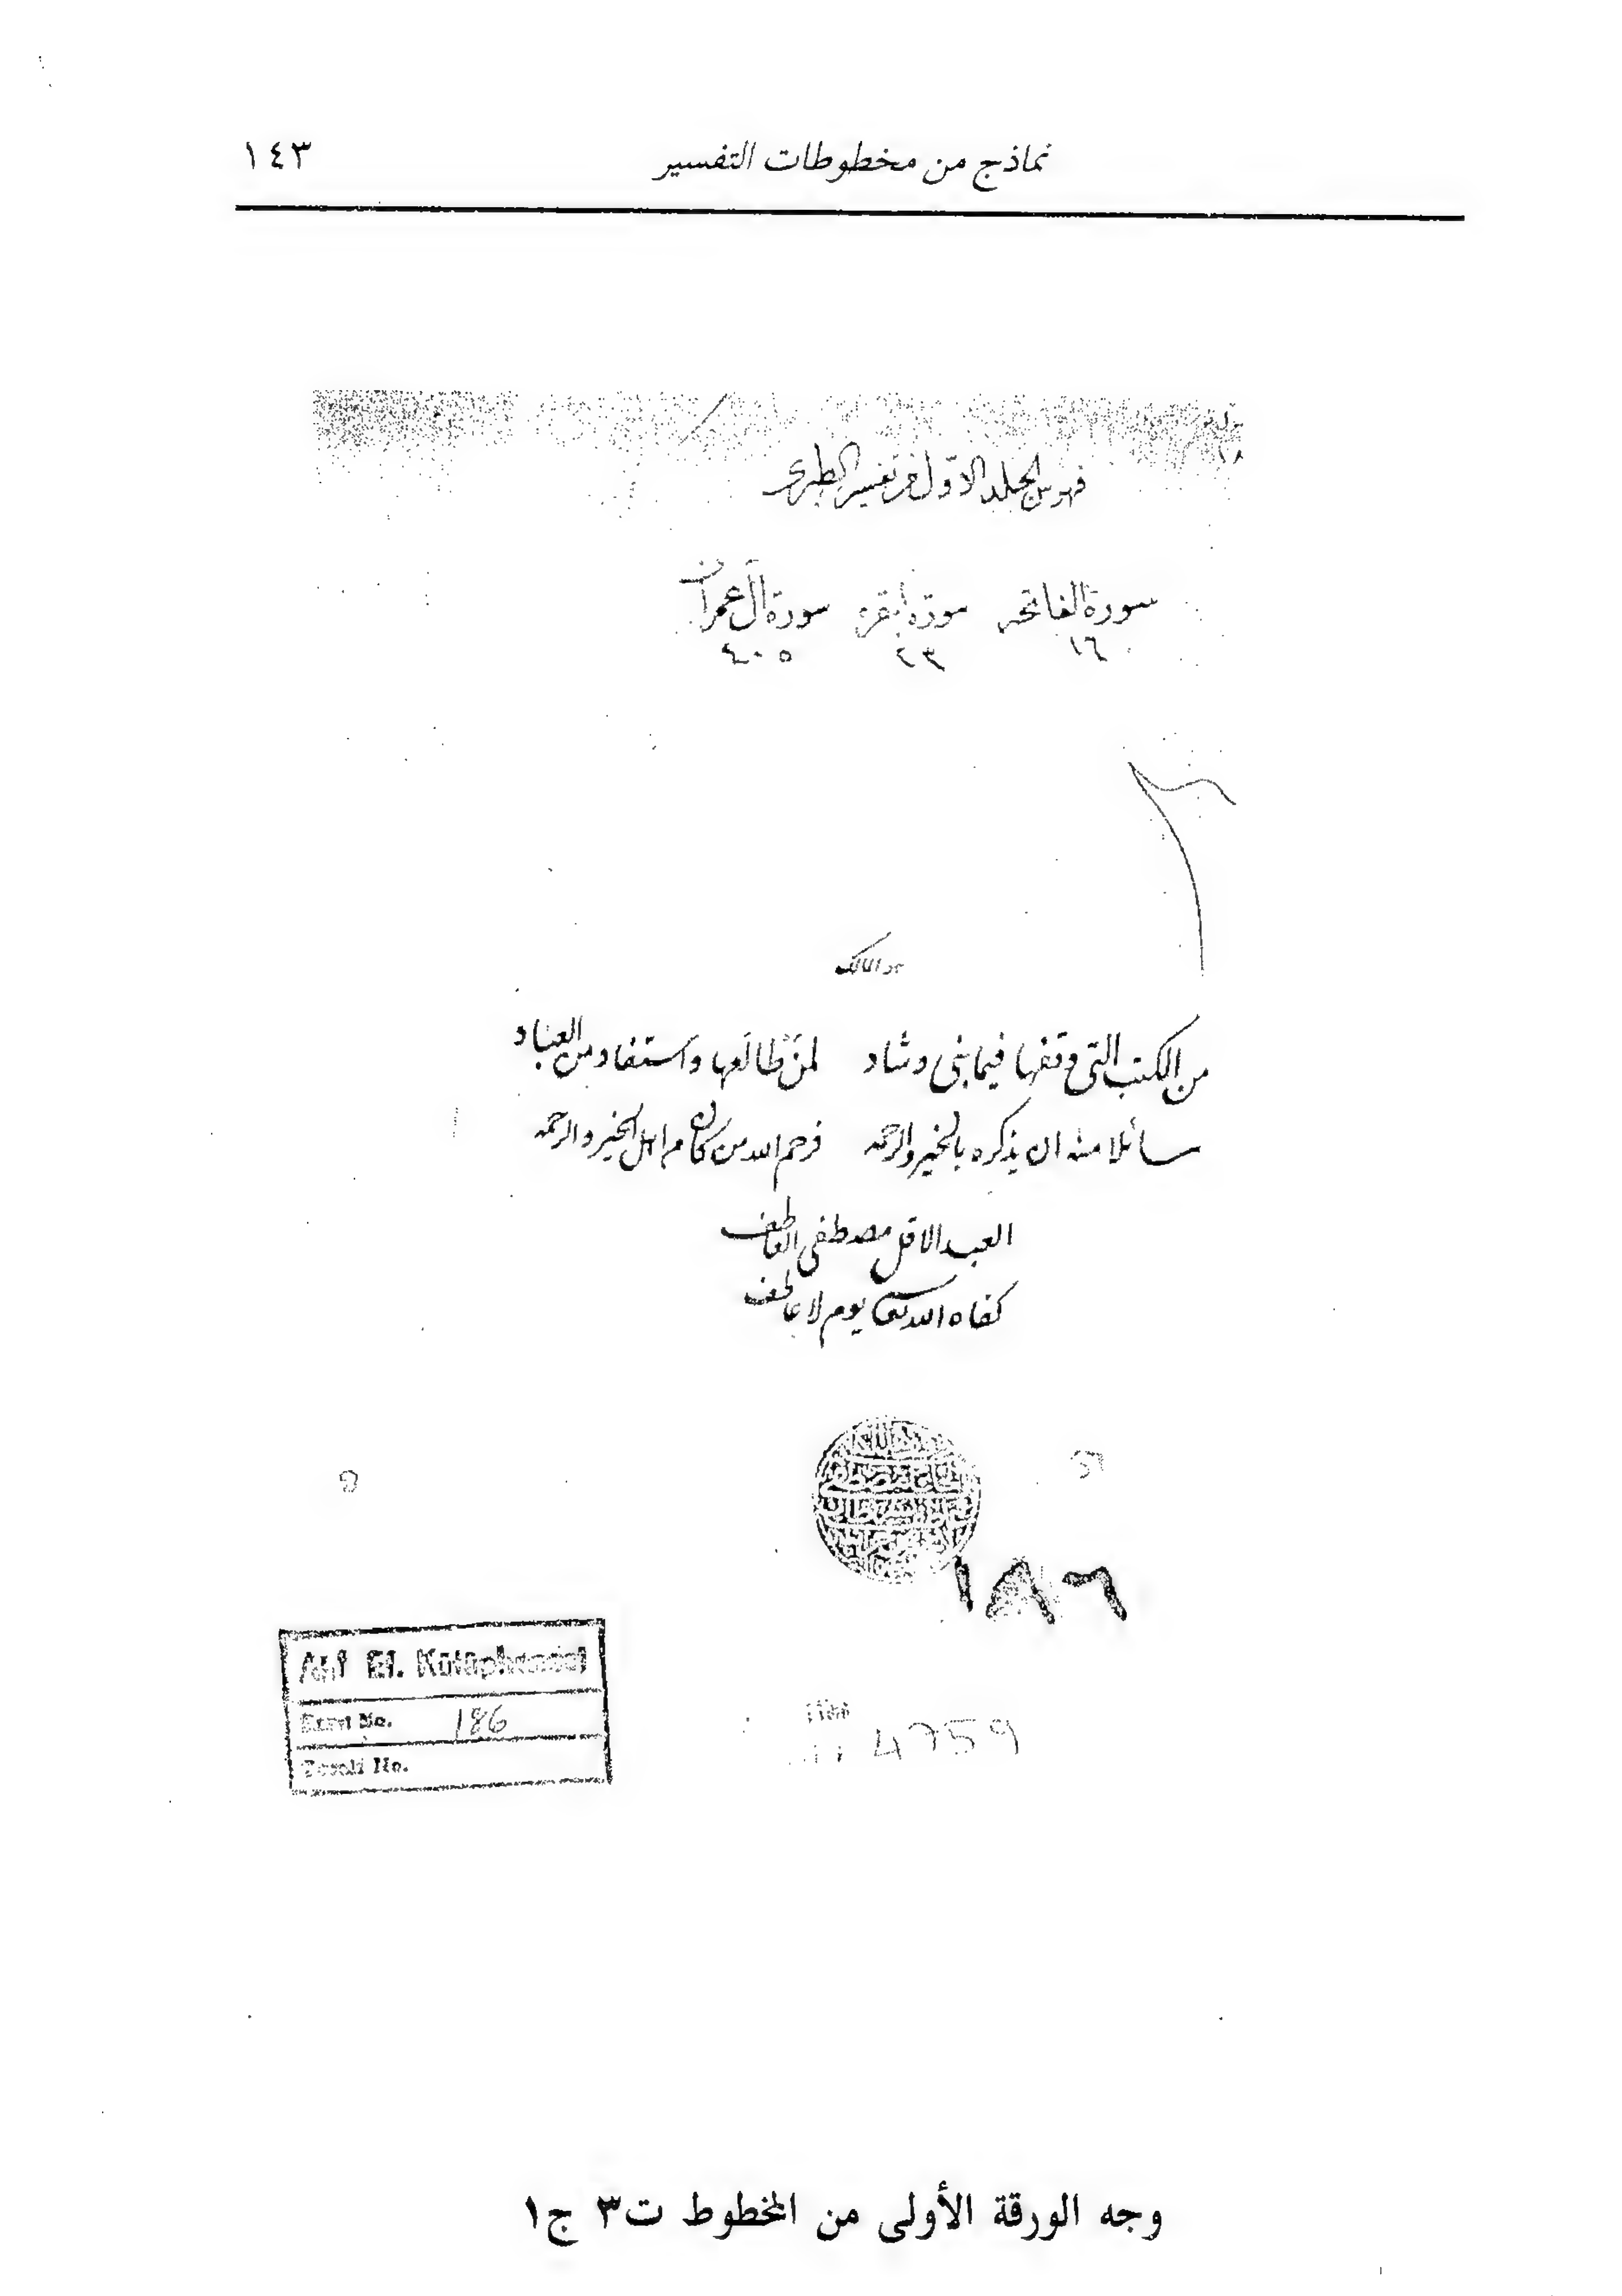 نماذج من مخطوطات التفسير ١٤٣
فهرس المجلد الاول من تفسير الطبرى
سورة الفاتحه سورة البقره سورة آل عمران
١٦ ٢٣ ٤٠٥
من الكتب التى وقفها فيما بنى وشاد لمن طالعها واستفاد من العباد
سائلا منه ان يذكره بالخير والرحمه فرحم الله من كان من اهل الخير والرحمه
العبد الاقل مصطفى العاطف
كفاه الله تعالى يوم لا عاطف
١٨٦
Atıf Ef. Kütüphanesi
Esas No. 186
Tasnif No.
4759
وجه الورقة الأولى من المخطوط ت٣ ج١